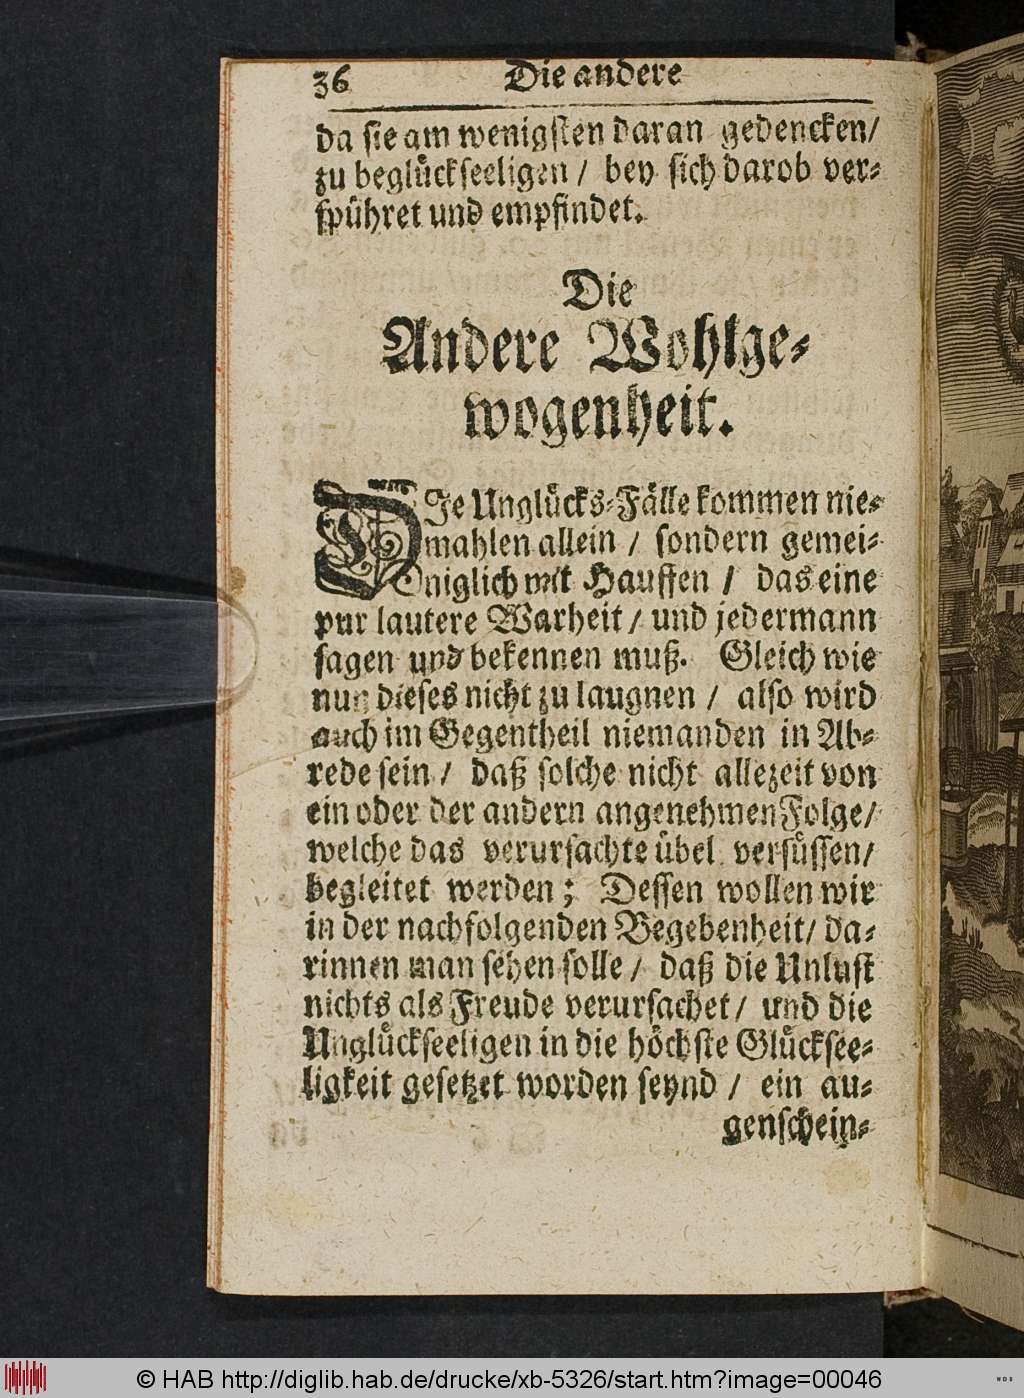 36 Die andere
da sie am wenigsten daran gedencken/
zu beglückseeligen / bey sich darob ver-
spühret und empfindet.
Die
Andere Wohlge-
wogenheit.
DIe Unglücks-Fälle kommen nie-
mahlen allein / sondern gemei-
niglich mit Hauffen / das eine
pur lautere Warheit / und jedermann
sagen und bekennen muß. Gleich wie
nun dieses nicht zu laugnen / also wird
auch im Gegentheil niemanden in Ab-
rede sein / daß solche nicht allezeit von
ein oder der andern angenehmen Folge/
welche das verursachte übel versüssen/
begleitet werden; Dessen wollen wir
in der nachfolgenden Begebenheit/ da-
rinnen man sehen solle / daß die Unlust
nichts als Freude verursachet / und die
Unglückseeligen in die höchste Glücksee-
ligkeit gesetzet worden seynd / ein au-
genschein-
© HAB http://diglib.hab.de/drucke/xb-5326/start.htm?image=00046